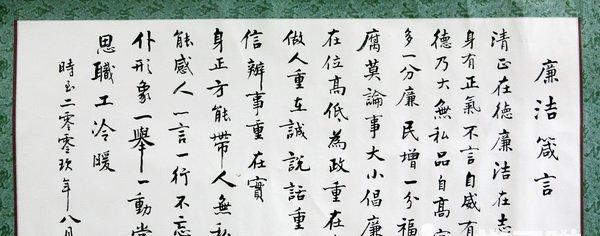 廉洁箴言
清正在德廉洁在
身有正氣不言自威有
德乃大無私品自高
多一分廉民增一分福
腐莫論事大小倡廉
在位高低為政重在
做人重在誠說話重
信辦事重在實
身正方能帶人無私
能感人一言一行不忘
仆形象一舉一動常
思職工冷暖
時至二零零玖年八月